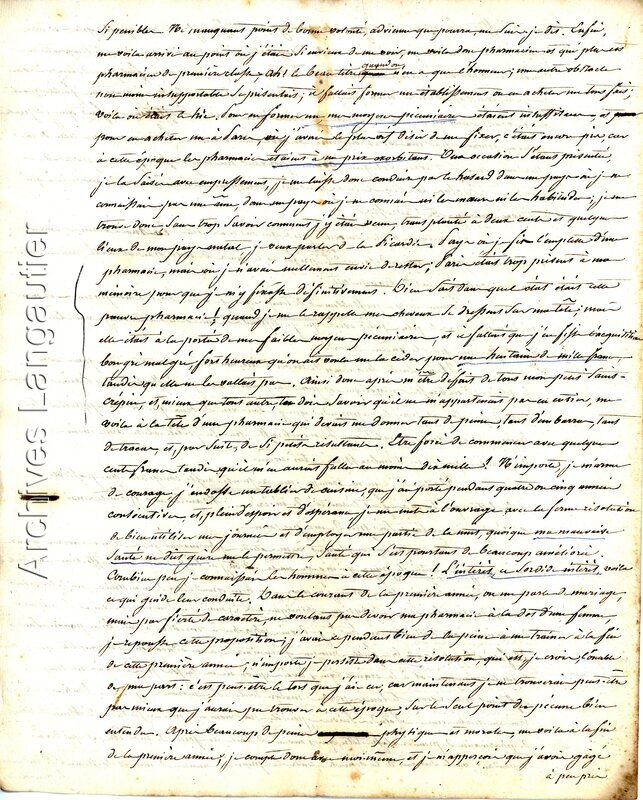 si pénible. Ne manquant point de bonne volonté, advienne que pourra me suis-je dit. Enfin,
me voilà arrivé au point où j'étais si envieux de me voir, me voilà donc pharmacien et qui plus est
pharmacien de première classe. Ah! le beau titre quand on n'en a que l'honneur; un autre obstacle
non moins insupportable se présentait; il fallait former un établissement ou en acheter un tout fait;
voilà le hic. Pour en former un mes moyens pécuniaires étaient insuffisans, et
pour en acheter un à Paris, où j'avais le plus de désir de me fixer, c'était encore pis car
à cette époque les pharmacies étaient à un prix exorbitant. Une occasion s'étant présentée,
je la saisis avec empressement, je me laisse donc conduire par le hasard dans un pays où je ne
connaissais pas une âme, dans un pays où je ne connais ni les mœurs ni les habitudes; je me
trouve donc sans trop savoir comment j'y étais venu, transplanté à deux cents et quelques
lieues de mon pays natal je veux parler de la Picardie. Pays où je fis l'emplette d'une
pharmacie, mais où je n'avais nullement envie de rester; Paris était trop présent à ma
mémoire pour que je m'y fixasse définitivement. Dieu sait dans quel état était cette
pauvre pharmacie! quand je me le rappelle mes cheveux se dressent sur ma tête; mais
elle était à la portée de mes faibles moyens pécuniaires, et il fallait que j'en fisse l'acquisition
bon gré malgré, fort heureux qu'on ait voulu me la céder pour une huitaine de mille francs,
tandis qu'elle ne les valait pas. Ainsi donc après m'être défait de tout mon petit Saint-
Crépin, et, mieux que tout autre, tu dois savoir qu'il ne m'appartenait pas en entier, me
voilà à la tête d'une pharmacie qui devait me donner tant de peine, tant d'embarras, tant
de tracas, et, par suite, de si petits résultats. Être forcé de commencer avec quelques
cents francs tandis qu'il m'en aurait fallu au moins dix mille! N'importe, je m'arme
de courage j'endosse un tablier de cuisine, que j'ai porté pendant quatre ou cinq années
consécutives et, plein d'espoir et d'espérance je me mets à l'ouvrage avec la ferme résolution
de bien utiliser mes journées et d'employer une partie de la nuit, quoique ma mauvaise
santé ne dût guère me le permettre, santé qui s'est pourtant de beaucoup améliorée.
Combien peu je connaissais les hommes à cette époque! L'intérêt, ce sordide intérêt, voilà
ce qui guide leur conduite. Dans le courant de la première année, on me parle de mariage,
mais par fierté de caractère, ne voulant pas devoir ma pharmacie à la dot d'une femme
je repousse cette proposition; j'avais cependant bien de la peine à me traîner à la fin
de cette première année; n'importe, je persiste dans cette résolution, qui est, je crois louable
de ma part: c'est peut-être le tort que j'ai eu, car maintenant je ne trouverais peut-être
pas mieux que j'aurais pu trouver à cette époque, sur le seul point des pécunes bien
entendu. Après beaucoup de peines physiques et morales, me voilà à la fin
de la première année; je compte donc mon numéraire, et je m'aperçois que j'avais gagné
à peu près
Archives Langautier